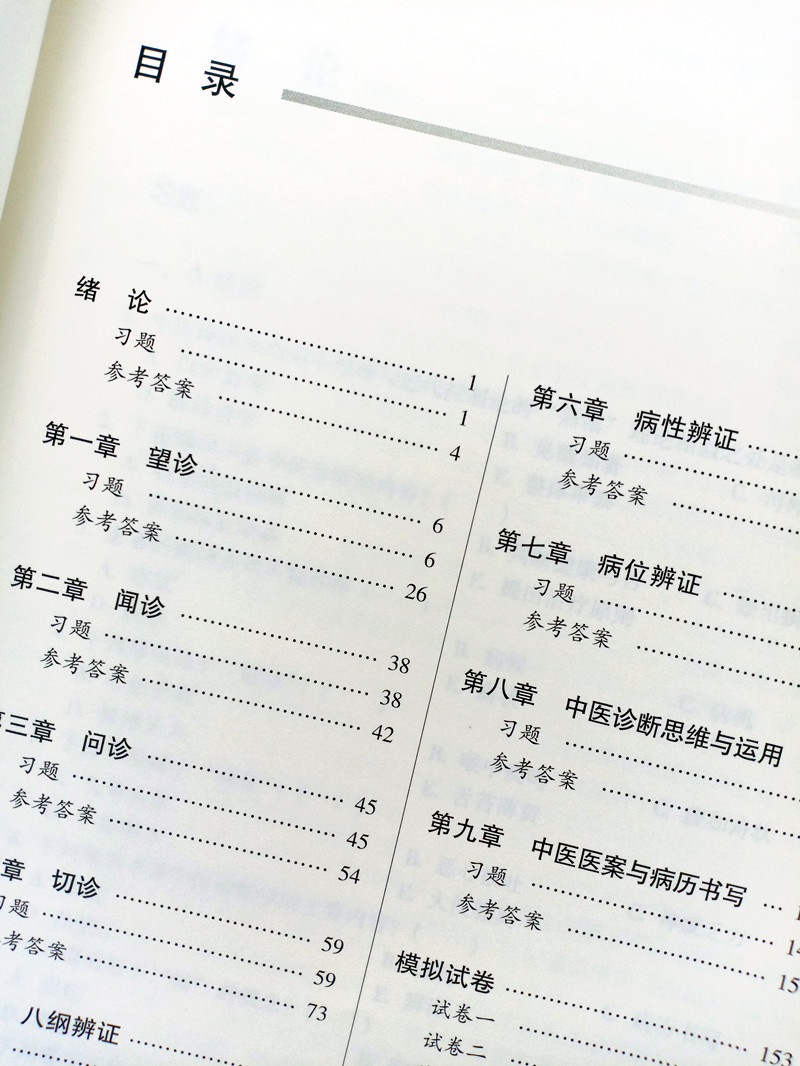 目 录
绪 论 …… 1
习题 …… 1
参考答案 …… 4
第一章 望诊 …… 6
习题 …… 6
参考答案 …… 26
第二章 闻诊 …… 38
习题 …… 38
参考答案 …… 42
三章 问诊 …… 45
习题 …… 45
参考答案 …… 54
章 切诊 …… 59
习题 …… 59
考答案 …… 73
八纲辨证 ……
第六章 病性辨证 ……
习题 ……
参考答案 ……
第七章 病位辨证 ……
习题 ……
参考答案 ……
第八章 中医诊断思维与运用
习题 ……
参考答案 ……
第九章 中医医案与病历书写 ……
习题 ……
参考答案 ……
模拟试卷 …… 153
试卷一 ……
试卷二 ……